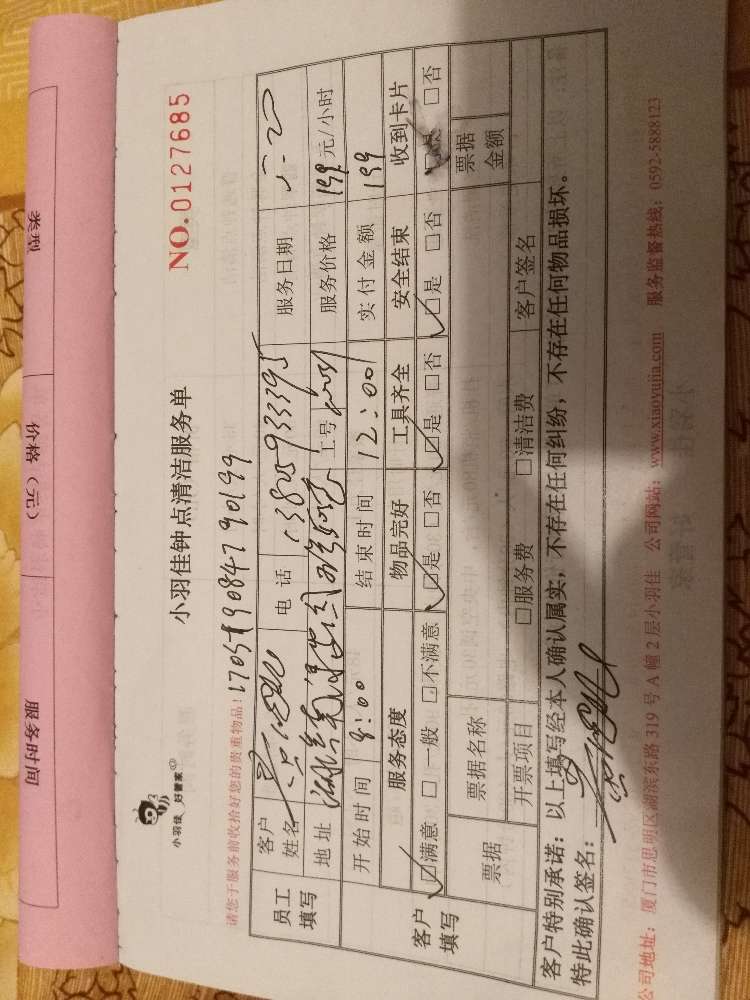 类型 价格（元） 服务时间
小羽佳 好管家
小羽佳钟点清洁服务单
NO.0127685
请您于服务前收拾好您的贵重物品！
员工填写
客户姓名
电话
服务日期
地址
工号
服务价格 199 元/小时
客户填写
开始时间 8:00 结束时间 12:00 实付金额 199
服务态度 物品完好 工具齐全 安全结束 收到卡片
□满意 □一般 □不满意 □是 □否 □是 □否 □是 □否 □是 □否
票据 票据名称 票据金额
开票项目 □服务费 □清洁费 客户签名
客户特别承诺：以上填写经本人确认属实，不存在任何纠纷，不存在任何物品损坏。
特此确认签名：
公司地址：厦门市思明区湖滨东路 319 号 A 幢 2 层小羽佳 公司网站：www.xiaoyujia.com 服务监督热线：0592-5888123